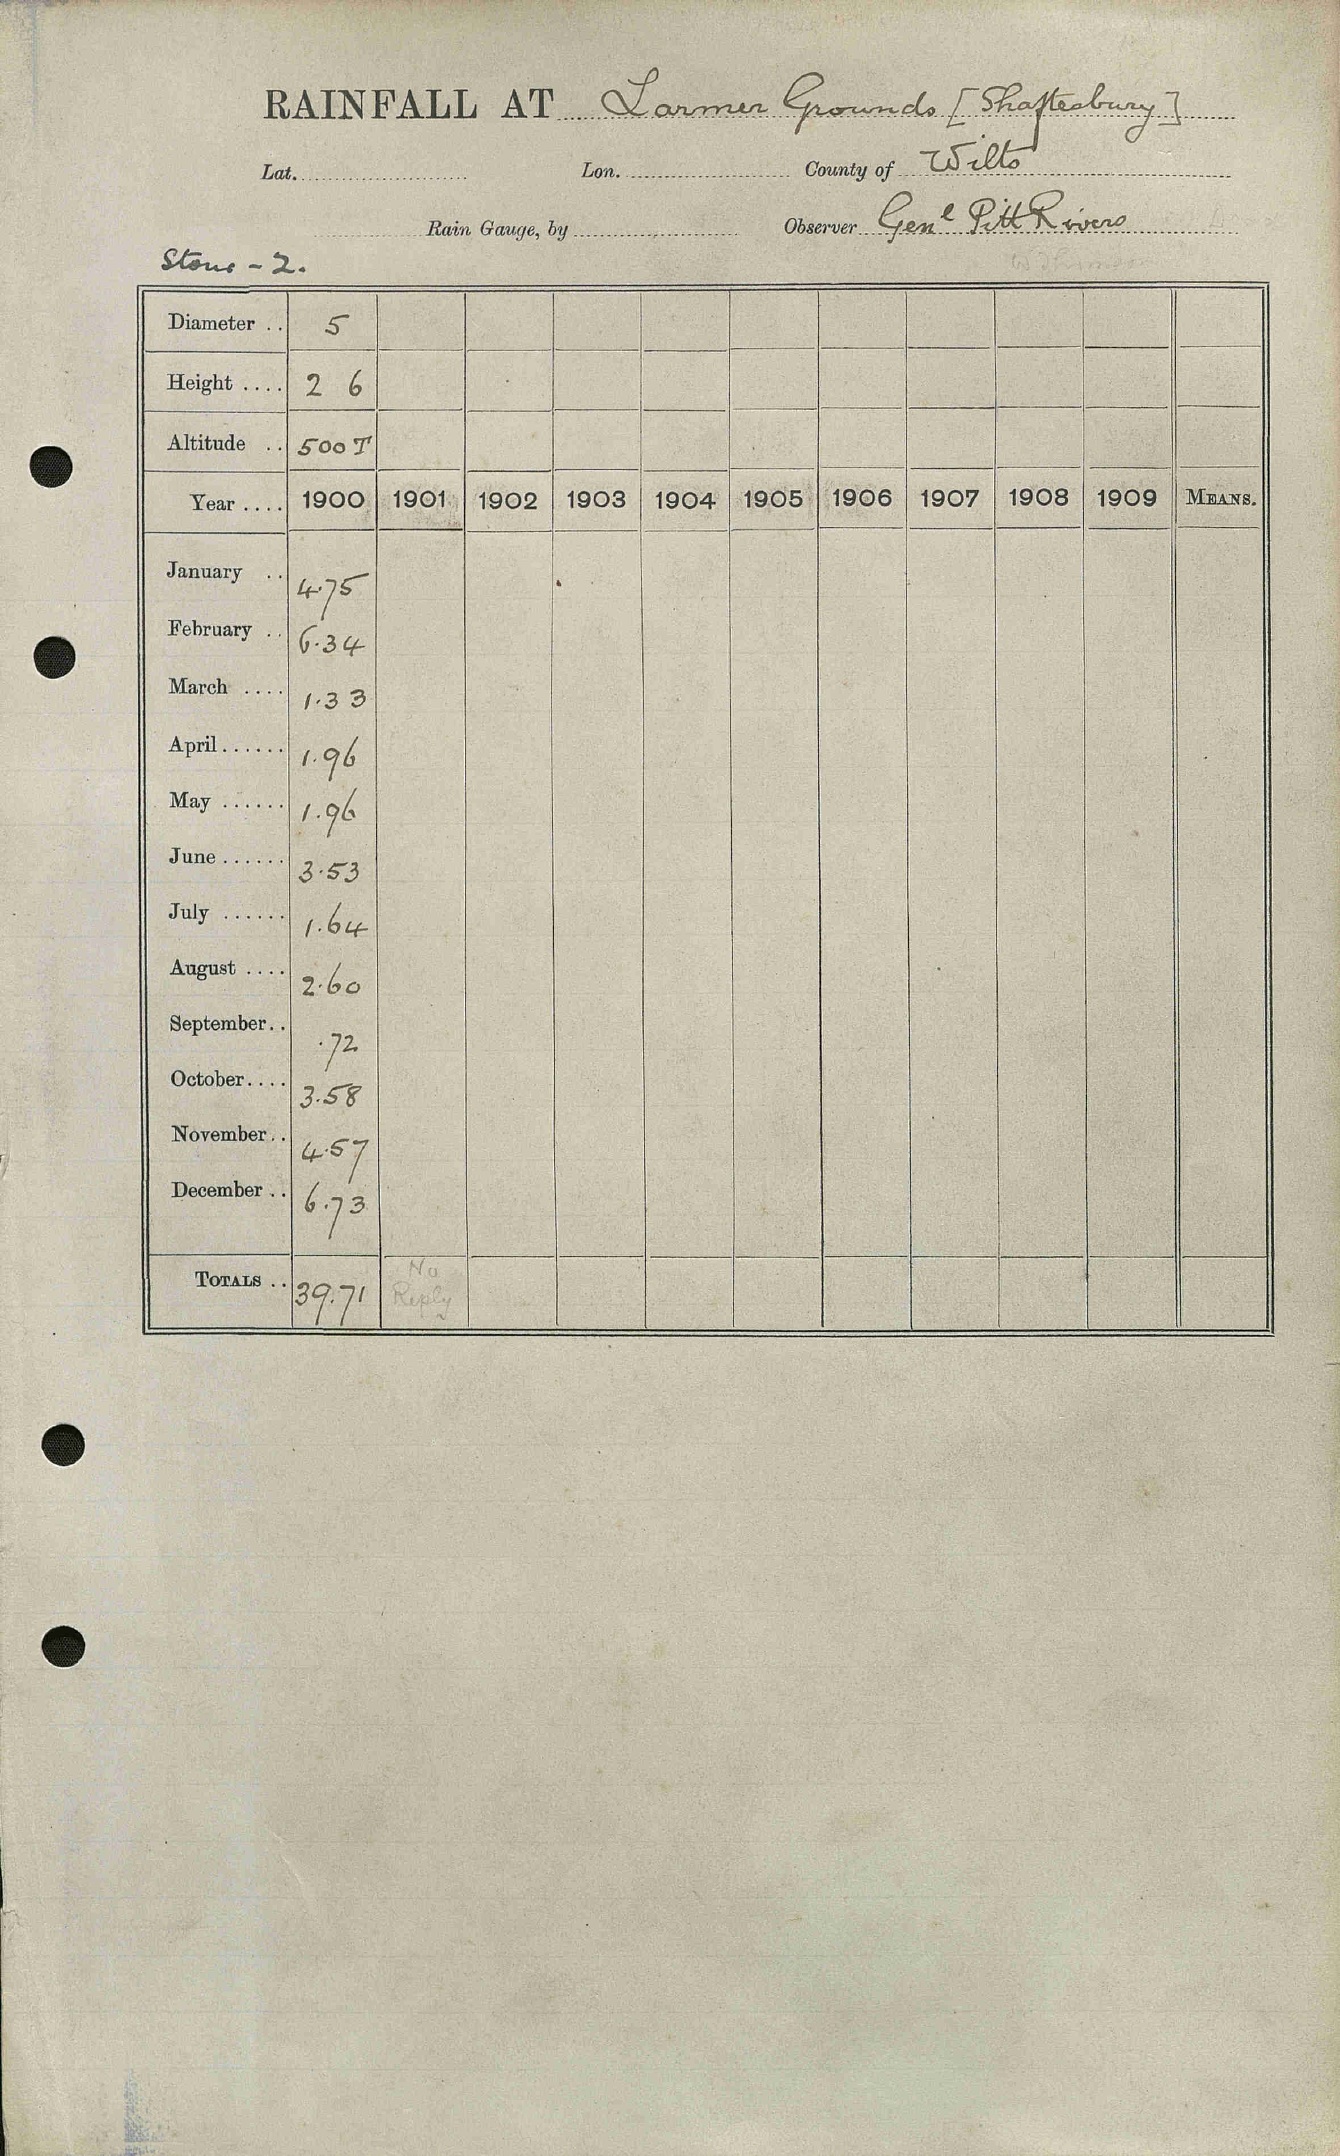 RAINFALL AT Larmer Grounds [Shaftesbury]
Lat. Lon. County of Wilts
Rain Gauge, by Observer Genl Pitt Rivers
Stour - 2.
Diameter .. 5
Height .... 2 6
Altitude .. 500 T
Year .... 1900 1901 1902 1903 1904 1905 1906 1907 1908 1909 MEANS.
January .. 4.75
February .. 6.34
March .... 1.33
April...... 1.96
May ...... 1.96
June ...... 3.53
July ...... 1.64
August .... 2.60
September.. .72
October.... 3.58
November.. 4.57
December .. 6.73
TOTALS .. 39.71 No
Reply